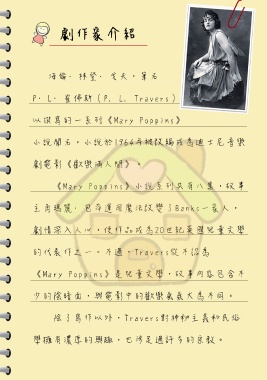 劇作家介紹
海倫．林登．戈夫，筆名
P．L．崔佛斯（P．L．Travers）
以撰寫的一系列《Mary Poppins》
小說聞名，小說於1964年被改編成為迪士尼音樂
劇電影《歡樂滿人間》。
《Mary Poppins》小說系列共有八集，故事
主角瑪麗．包萍運用魔法改變了Banks一家人，
劇情深入人心，使作品成為20世紀英國兒童文學
的代表作之一。不過，Travers從不認為
《Mary Poppins》是兒童文學，故事內容包含不
少的陰暗面，與電影中的歡樂氣氛大為不同。
除了寫作以外，Travers對神秘主義和民俗
學擁有濃厚的興趣，也涉足過許多的宗教。